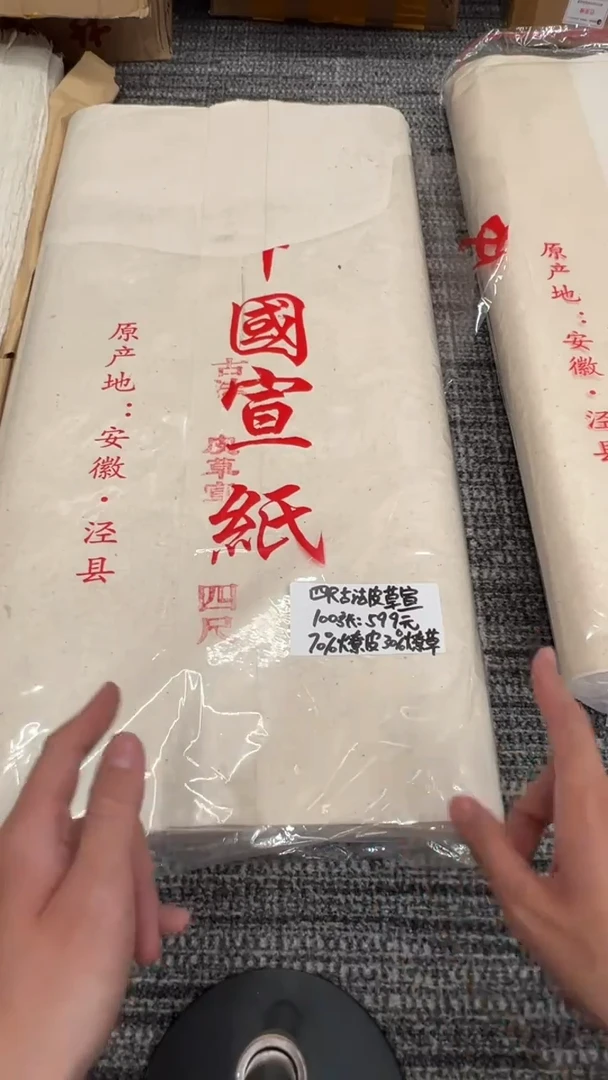 中國宣紙
原产地：安徽·泾县
皮草宣
四尺
四尺古法皮草宣
100张:599元
70%燎皮30%燎草
原产地：安徽·泾县